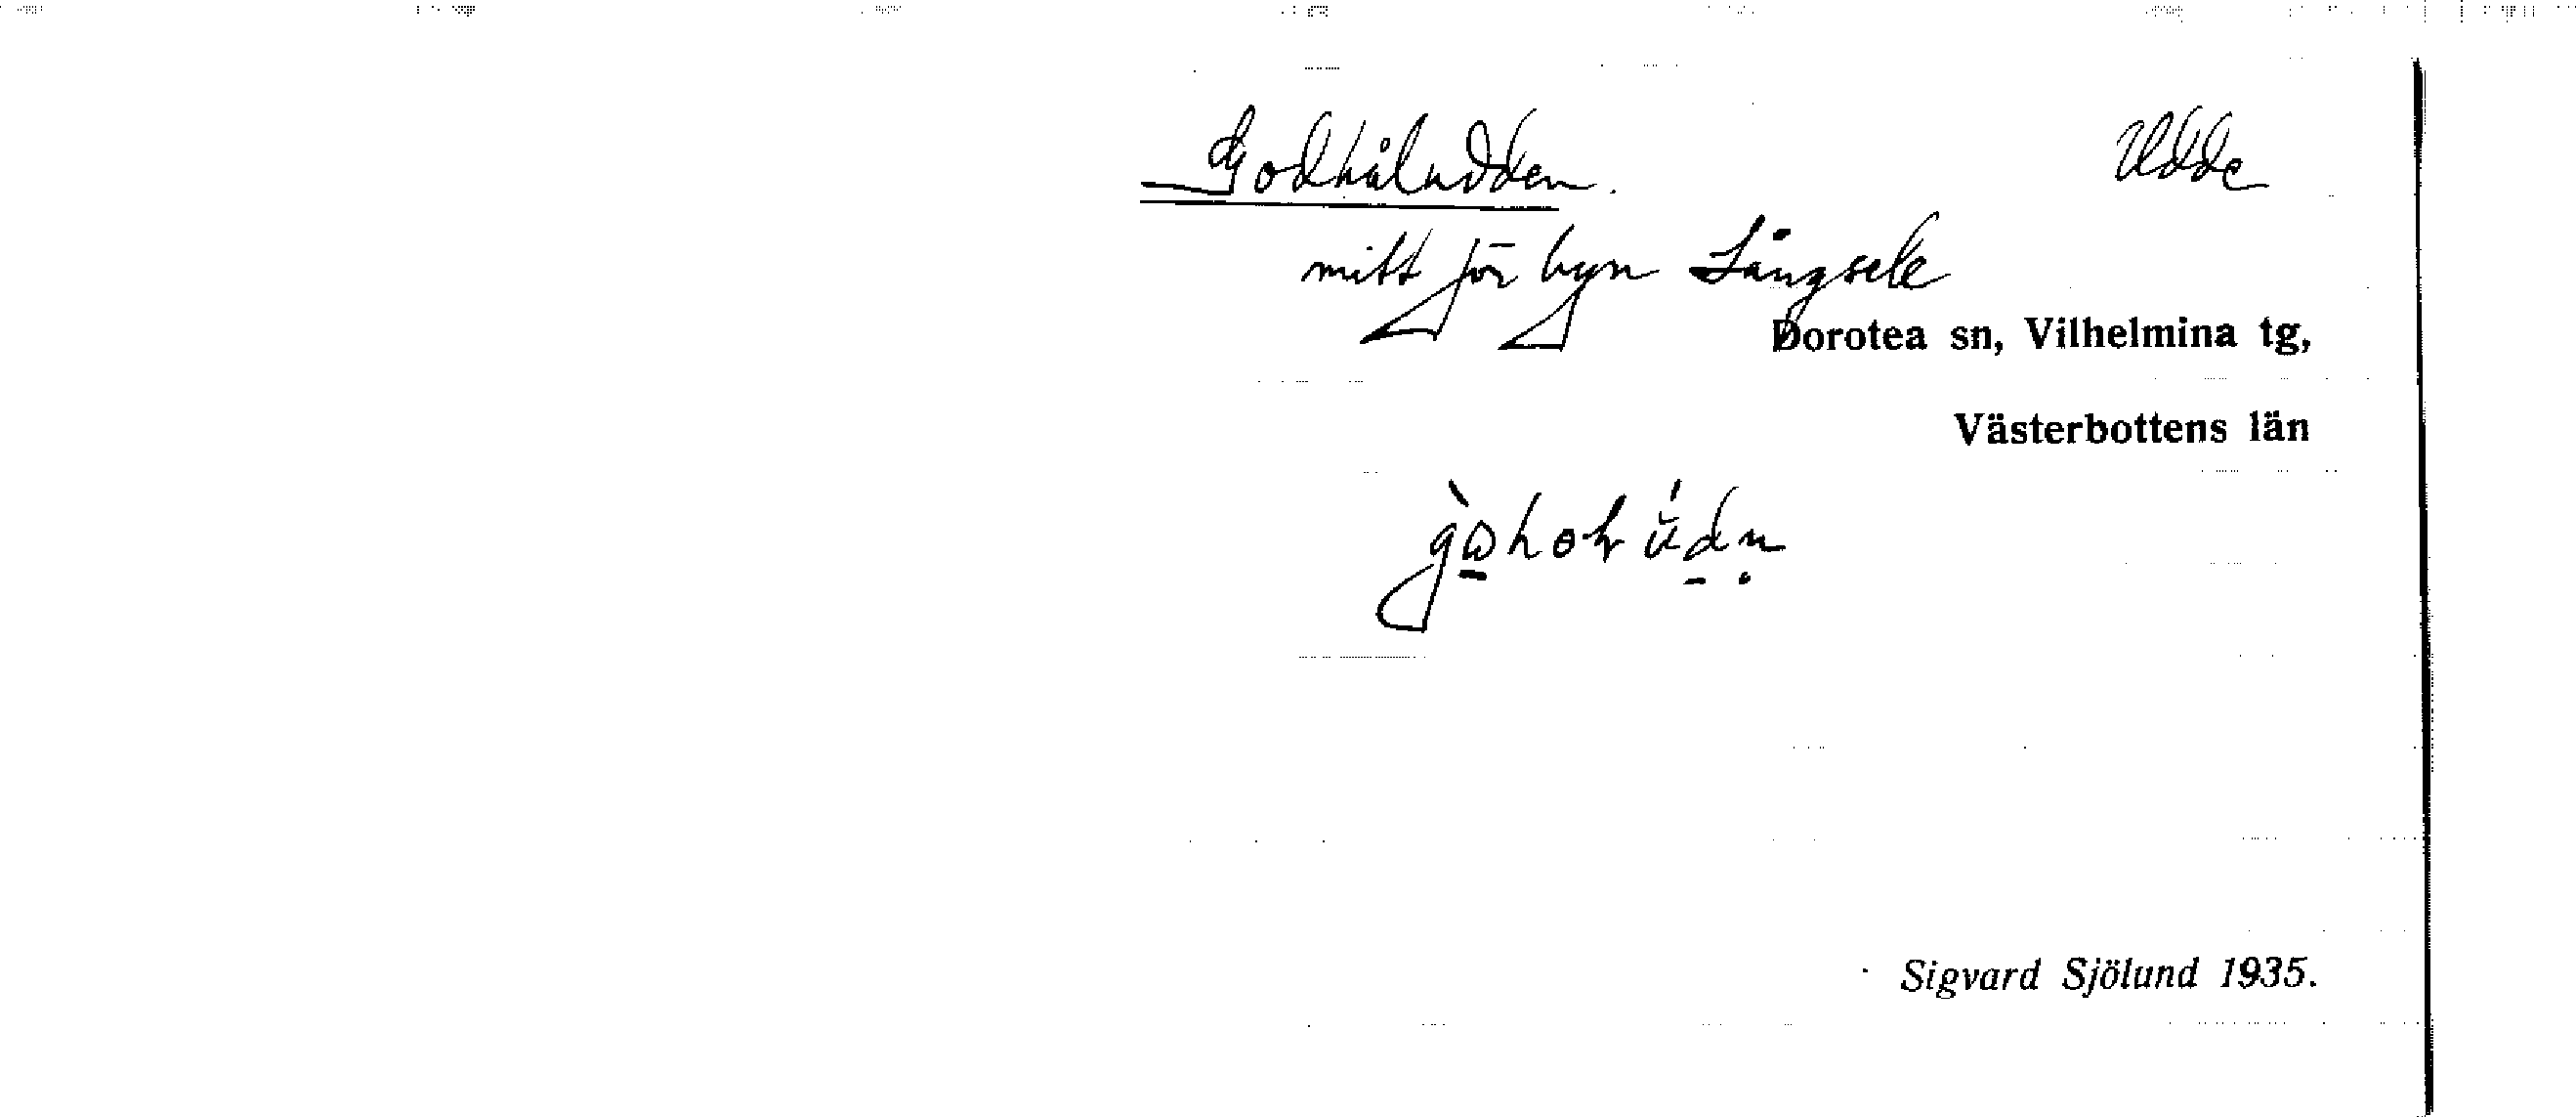 Godhåludden. Udde
mitt för byn Långsele
Dorotea sn, Vilhelmina tg,
Västerbottens län
Sigvard Sjölund 1935.